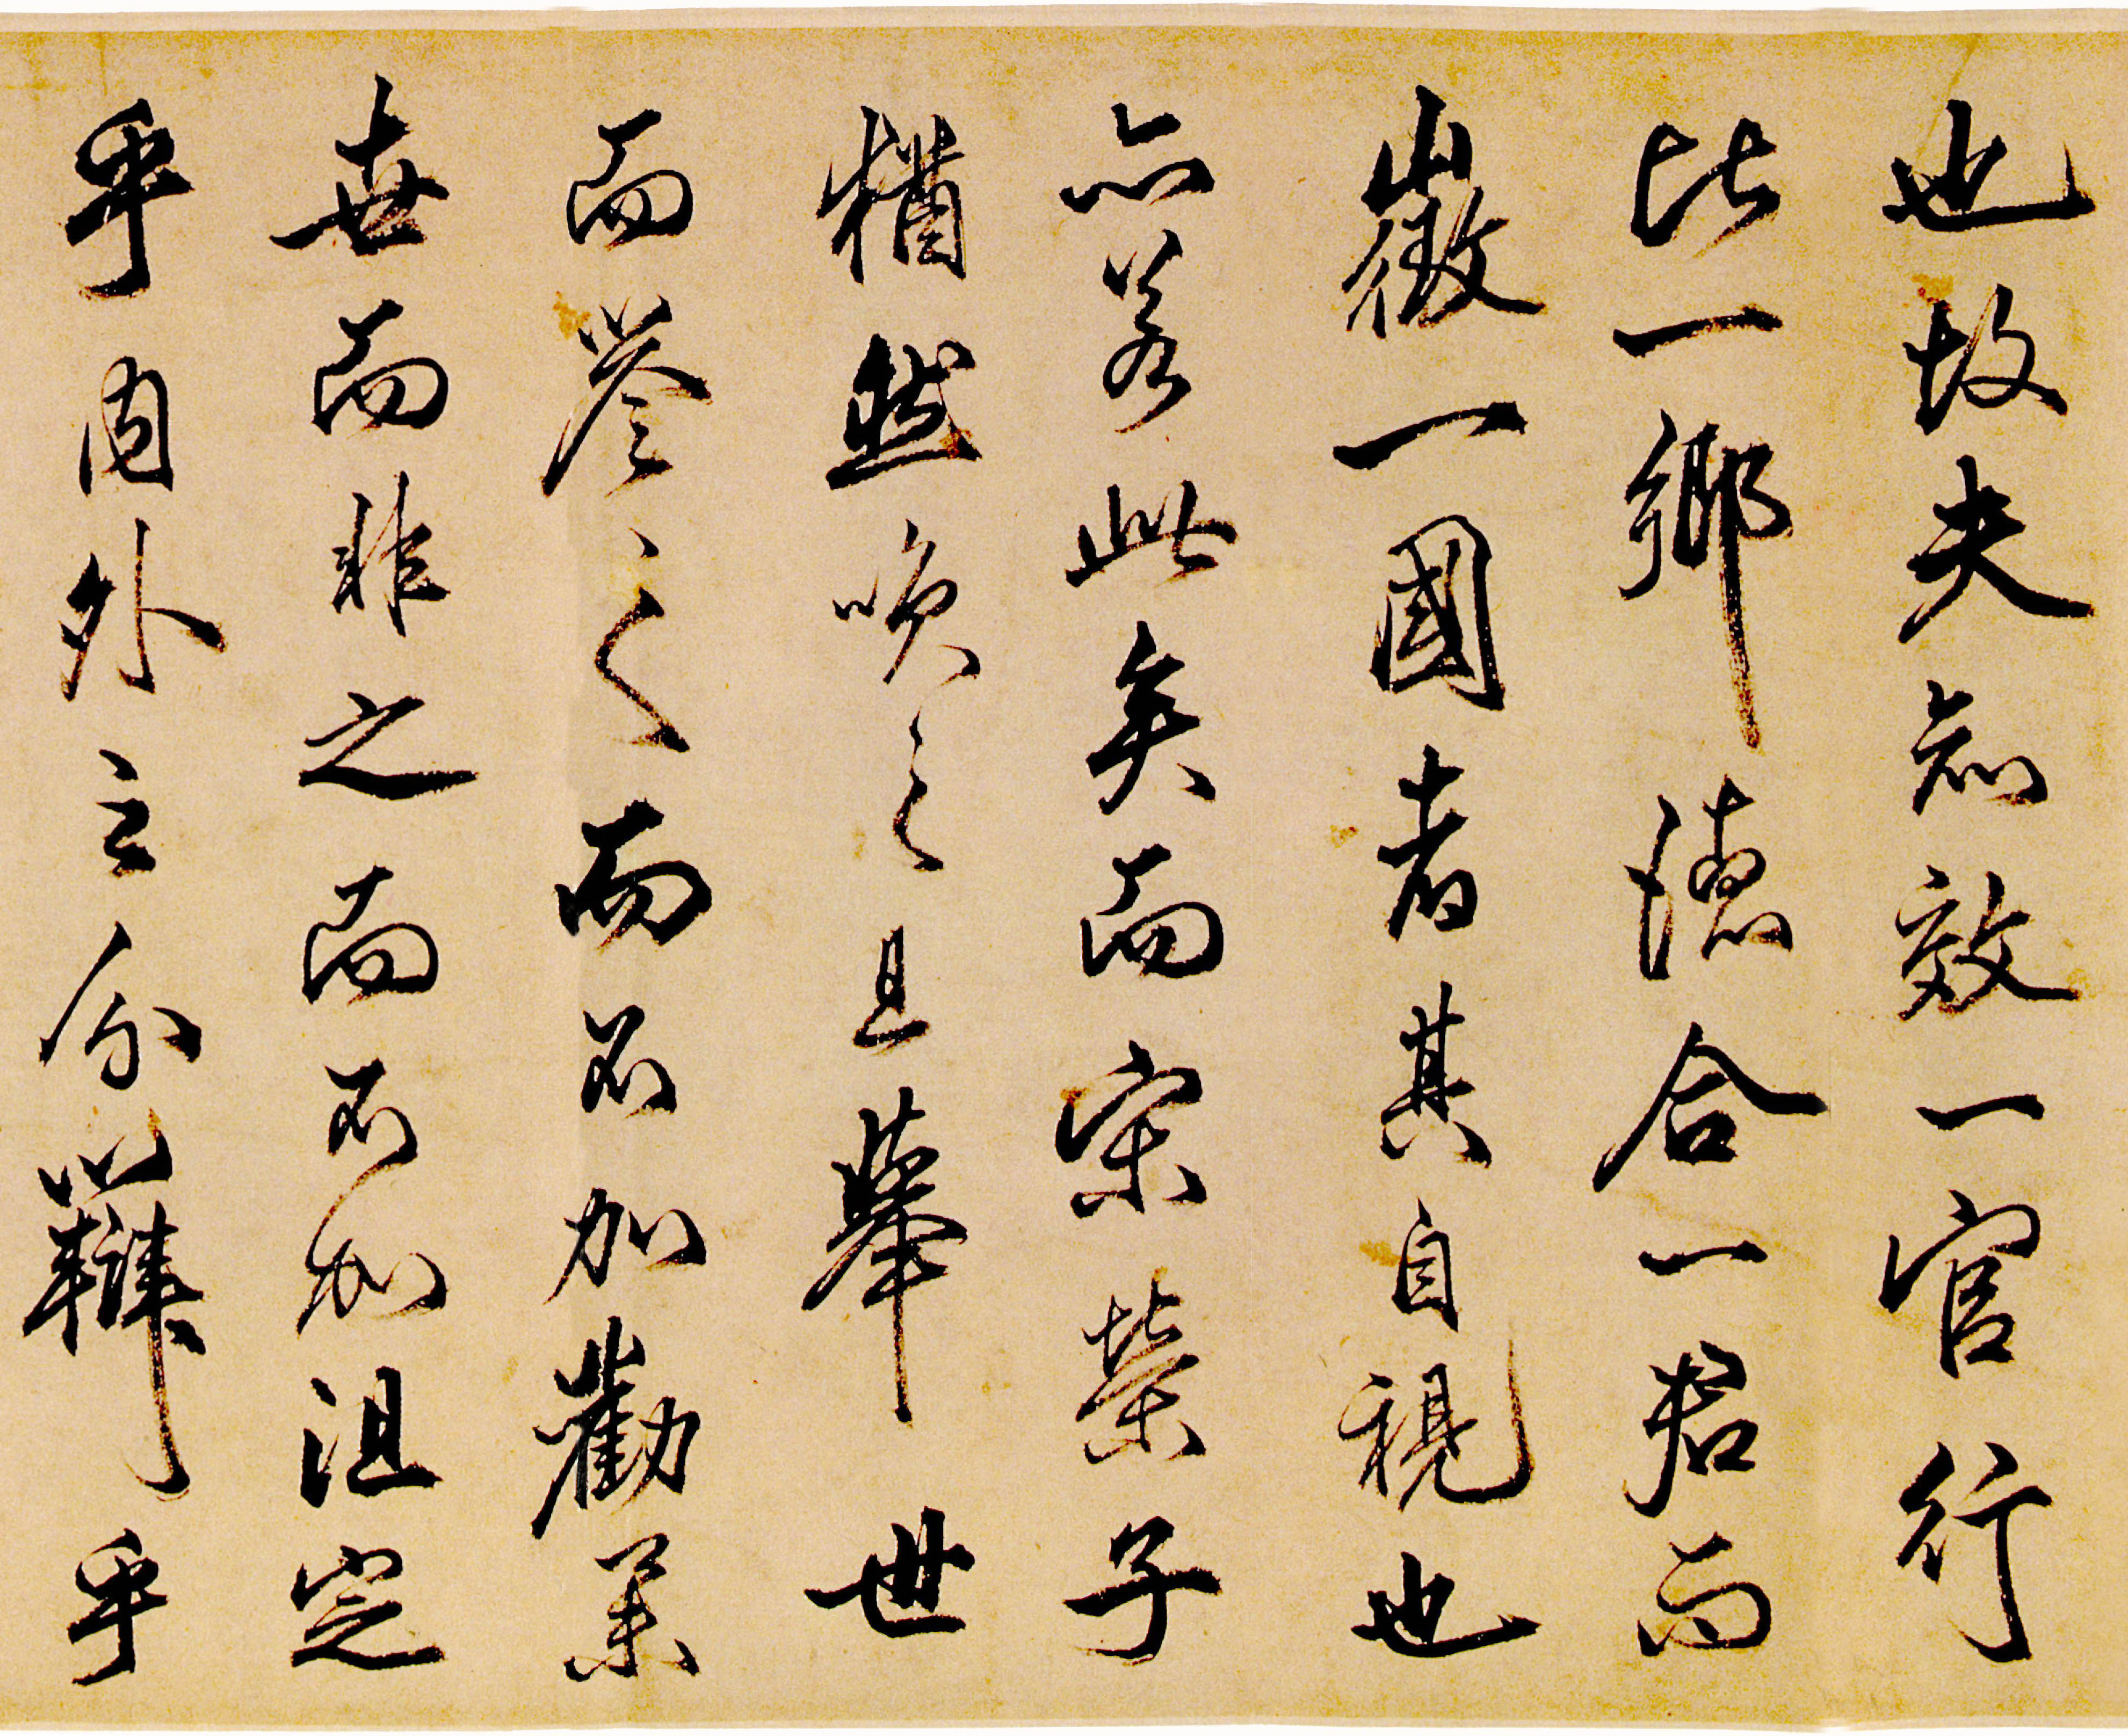 也故夫知效一官行
比一鄉德合一君而
徵一國者其自視也
亦若此矣而宋榮子
猶然咲之且舉世
而譽之而不加勸舉
世而非之而不加沮定
乎內外之分辯乎